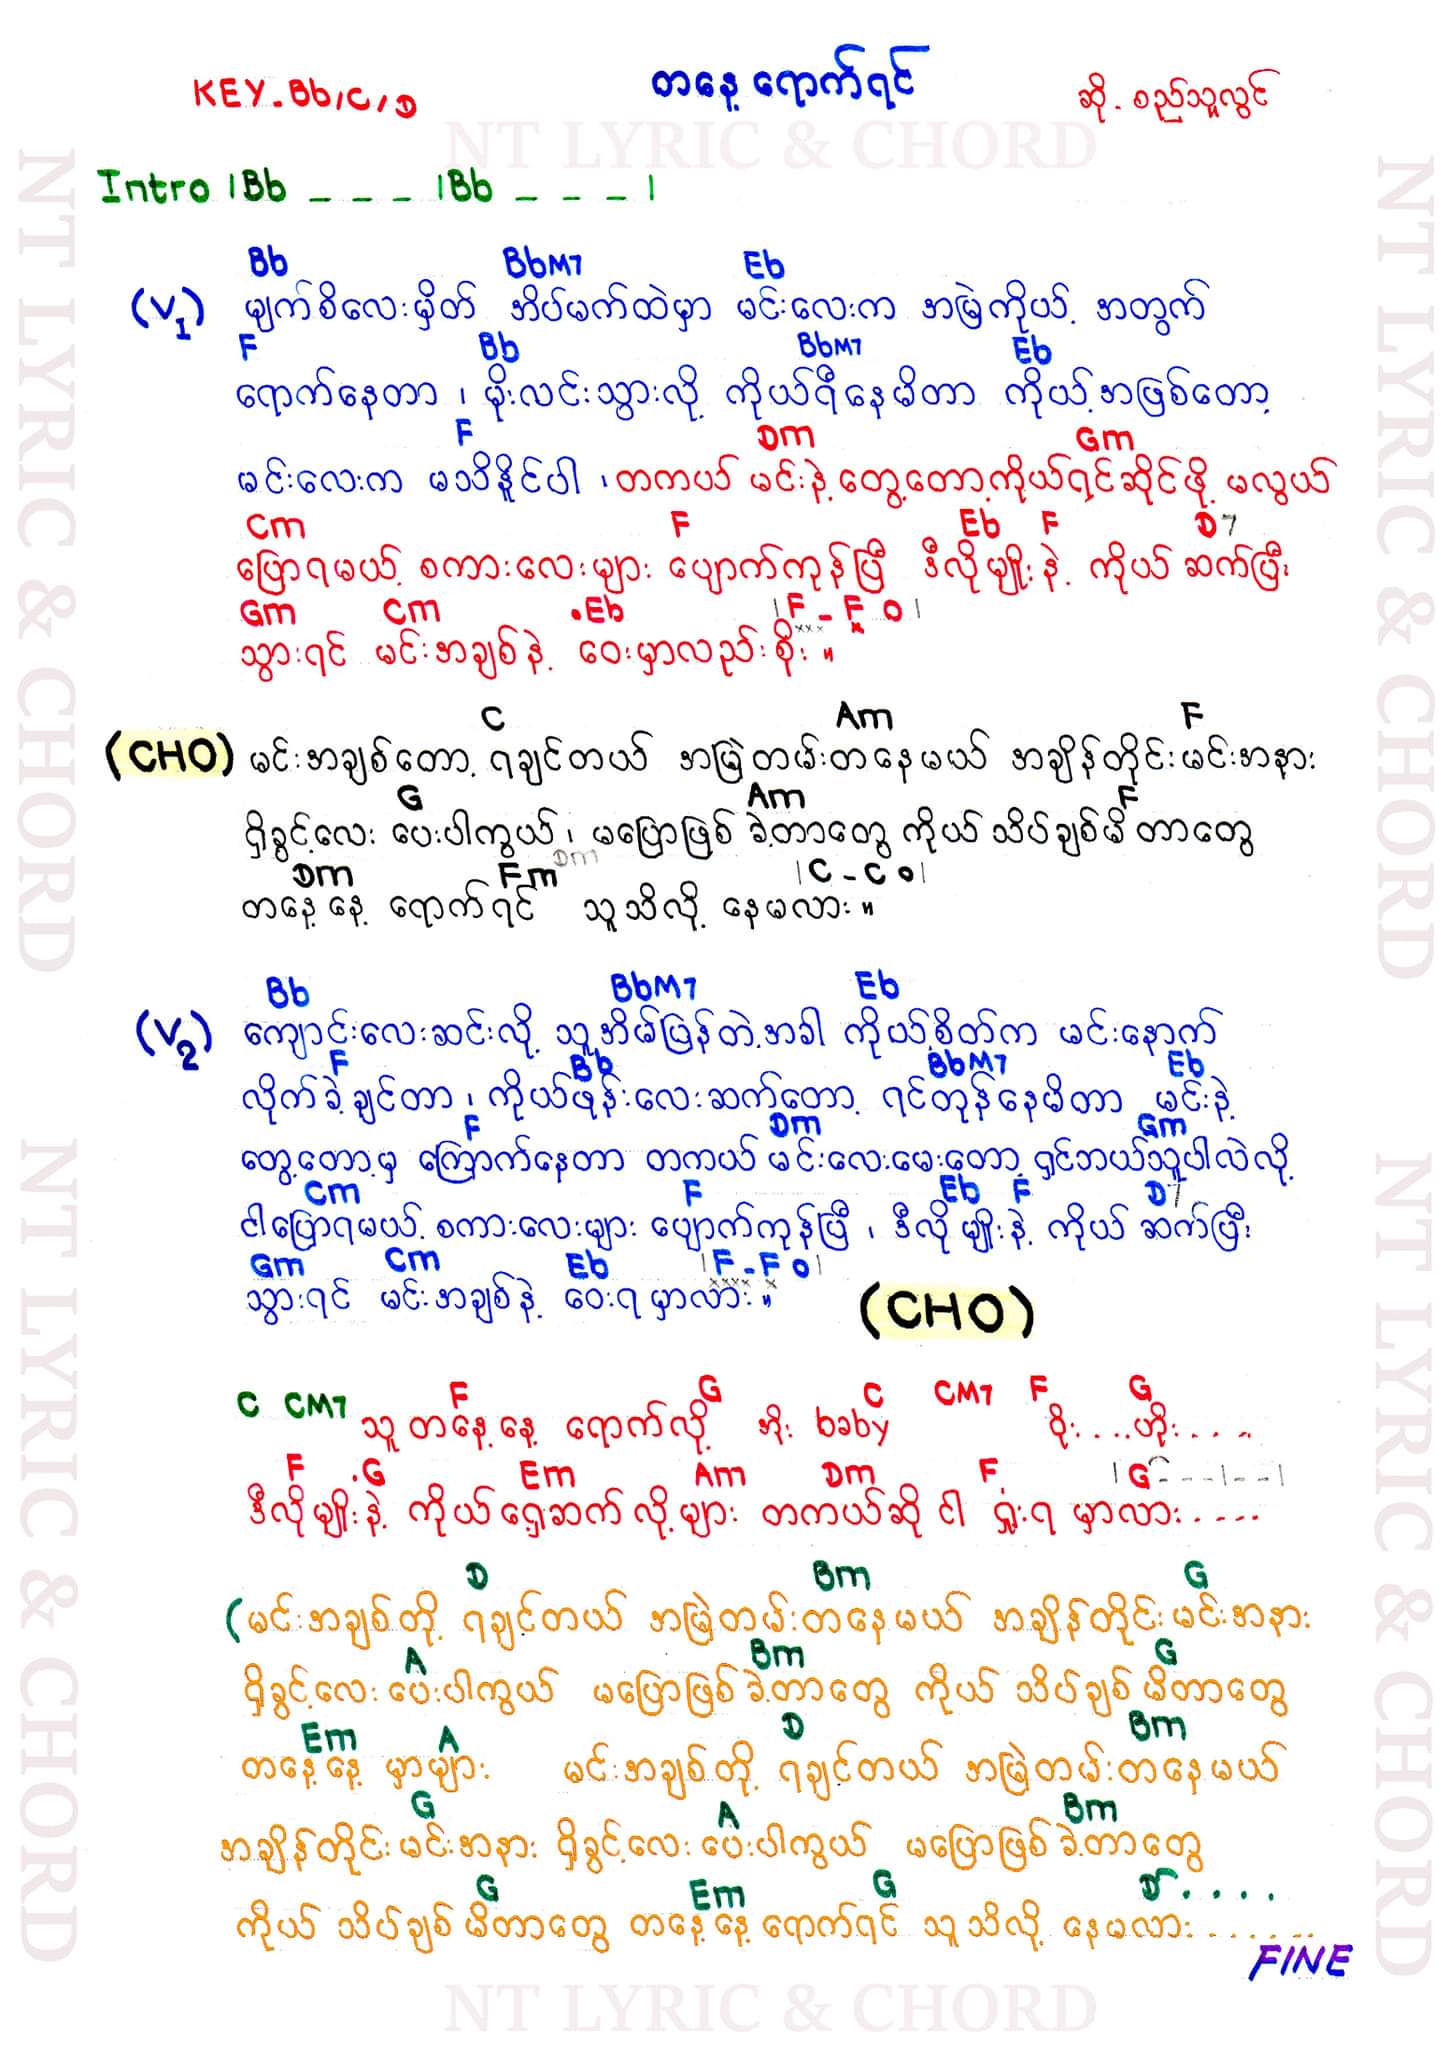 KEY-Bb/C/D
တနေ့ ရောက်ရင်
ဆို - စည်သူလွင်
NT LYRIC & CHORD
Intro |Bb _ _ _ |Bb _ _ _ |
Bb BbM7 Eb
(V1) မျက်စိလေးမှိတ် အိပ်မက်ထဲမှာ မင်းလေးက အမြဲကိုယ့် အတွက်
F Bb BbM7 Eb
ရောက်နေတာ ၊ မိုးလင်းသွားလို့ ကိုယ်ရီနေမိတာ ကိုယ့်အဖြစ်တော့
F Dm Gm
မင်းလေးက မသိနိူင်ပါ ၊ တကယ် မင်းနဲ့တွေ့တော့ကိုယ်ရင်ဆိုင်ဖို့ မလွယ်
Cm F Eb F D7
ပြောရမယ့် စကားလေးများ ပျောက်ကုန်ပြီ ဒီလိုမျိုးနဲ့ ကိုယ် ဆက်ပြီး
Gm Cm .Eb |F - F 0|
သွားရင် မင်းအချစ်နဲ့ ဝေးမှာလည်းစိုး ။
C Am F
(CHO) မင်းအချစ်တော့ ရချင်တယ် အမြဲတမ်းတနေမယ် အချိန်တိုင်းမင်းအနား
G Am F
ရှိခွင့်လေး ပေးပါကွယ် ၊ မပြောဖြစ် ခဲ့တာတွေ ကိုယ် သိပ်ချစ်မိ တာတွေ
Dm Fm Dm |C - C 0|
တနေ့နေ့ ရောက်ရင် သူသိလို့ နေမလား ။
Bb BbM7 Eb
(V2) ကျောင်းလေးဆင်းလို့ သူအိမ်ပြန်တဲ့အခါ ကိုယ့်စိတ်က မင်းနောက်
F Bb BbM7 Eb
လိုက်ခဲ့ချင်တာ ၊ ကိုယ်ဖုန်းလေးဆက်တော့ ရင်တုန်နေမိတာ မင်းနဲ့
F Dm Gm
တွေ့တော့မှ ကြောက်နေတာ တကယ် မင်းလေးမေးတော့ ရှင်ဘယ်သူပါလဲလို့
Cm F Eb F D7
ငါပြောရမယ့် စကားလေးများ ပျောက်ကုန်ပြီ ၊ ဒီလိုမျိုးနဲ့ ကိုယ် ဆက်ပြီး
Gm Cm Eb |F - F 0|
သွားရင် မင်းအချစ်နဲ့ ဝေးရမှာလား ။
(CHO)
C CM7 F G C CM7 F G
သူ တနေ့နေ့ ရောက်လို့ အိုး baby ဝိုး....ဟိုး....
F .G Em Am Dm F |G---|--|
ဒီလိုမျိုးနဲ့ ကိုယ်ရှေ့ဆက်လို့များ တကယ်ဆို ငါ ရှုံးရ မှာလား.....
D Bm G
(မင်းအချစ်တို့ ရချင်တယ် အမြဲတမ်းတနေမယ် အချိန်တိုင်းမင်းအနား
A Bm G
ရှိခွင့်လေး ပေးပါကွယ် မပြောဖြစ် ခဲ့တာတွေ ကိုယ် သိပ်ချစ် မိတာတွေ
Em A D Bm
တနေ့နေ့ မှာများ မင်းအချစ်တို့ ရချင်တယ် အမြဲတမ်းတနေမယ်
G A Bm
အချိန်တိုင်းမင်းအနား ရှိခွင့်လေး ပေးပါကွယ် မပြောဖြစ် ခဲ့တာတွေ
G Em G D....
ကိုယ် သိပ်ချစ် မိတာတွေ တနေ့နေ့ရောက်ရင် သူသိလို့ နေမလား.......
FINE
NT LYRIC & CHORD
NT LYRIC & CHORD
NT LYRIC & CHORD
NT LYRIC & CHORD
NT LYRIC & CHORD